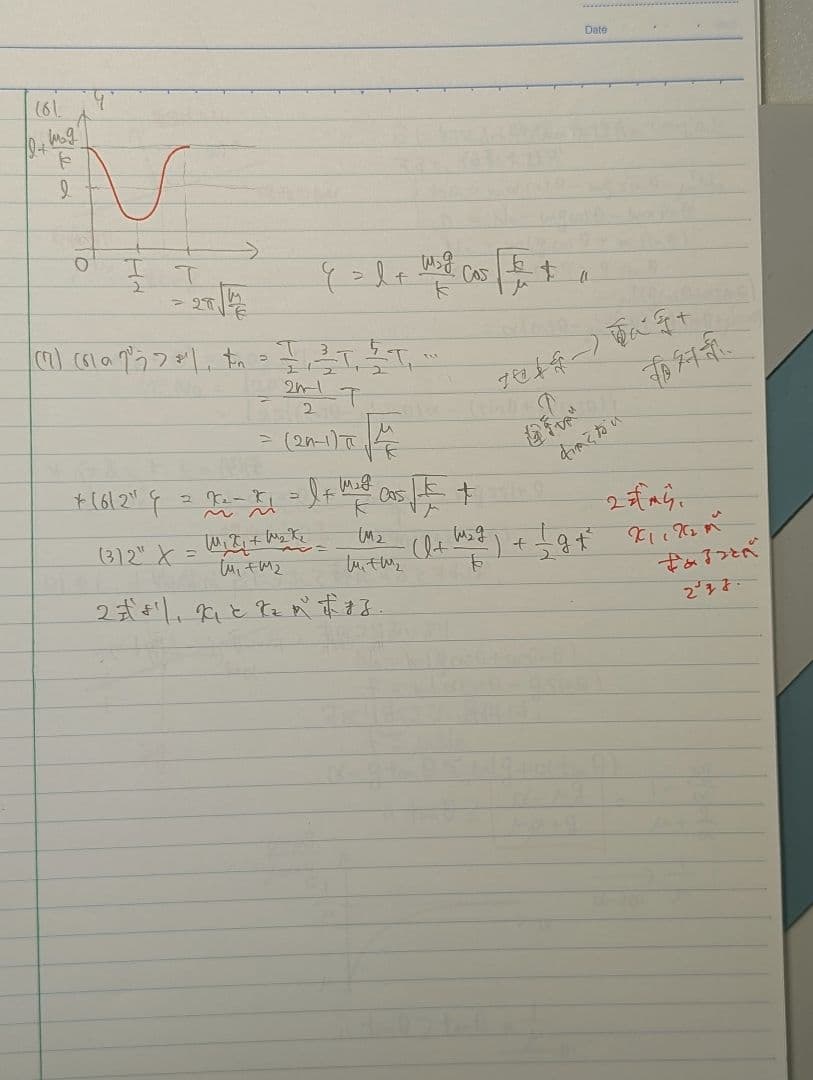 Date
(6)
φ
l+m₂g/k
l
0 T/2 T
= 2π√μ/k
φ = l + m₂g/k cos√k/μ t 〃
(7) (6)のグラフより、tn = T/2, 3/2 T, 5/2 T, …
= 2n-1/2 T
= (2n-1)π√μ/k
2体系 → 重心系+
相対系
↑
* (6)で φ = x₂ - x₁ = l + m₂g/k cos√k/μ t
(3)で X = m₁x₁+m₂x₂/m₁+m₂ = m₂/m₁+m₂ (l+m₂g/k) + 1/2 gt²
2式より、x₁とx₂が求まる.
2式から、
x₁, x₂が
求めることが
できる.